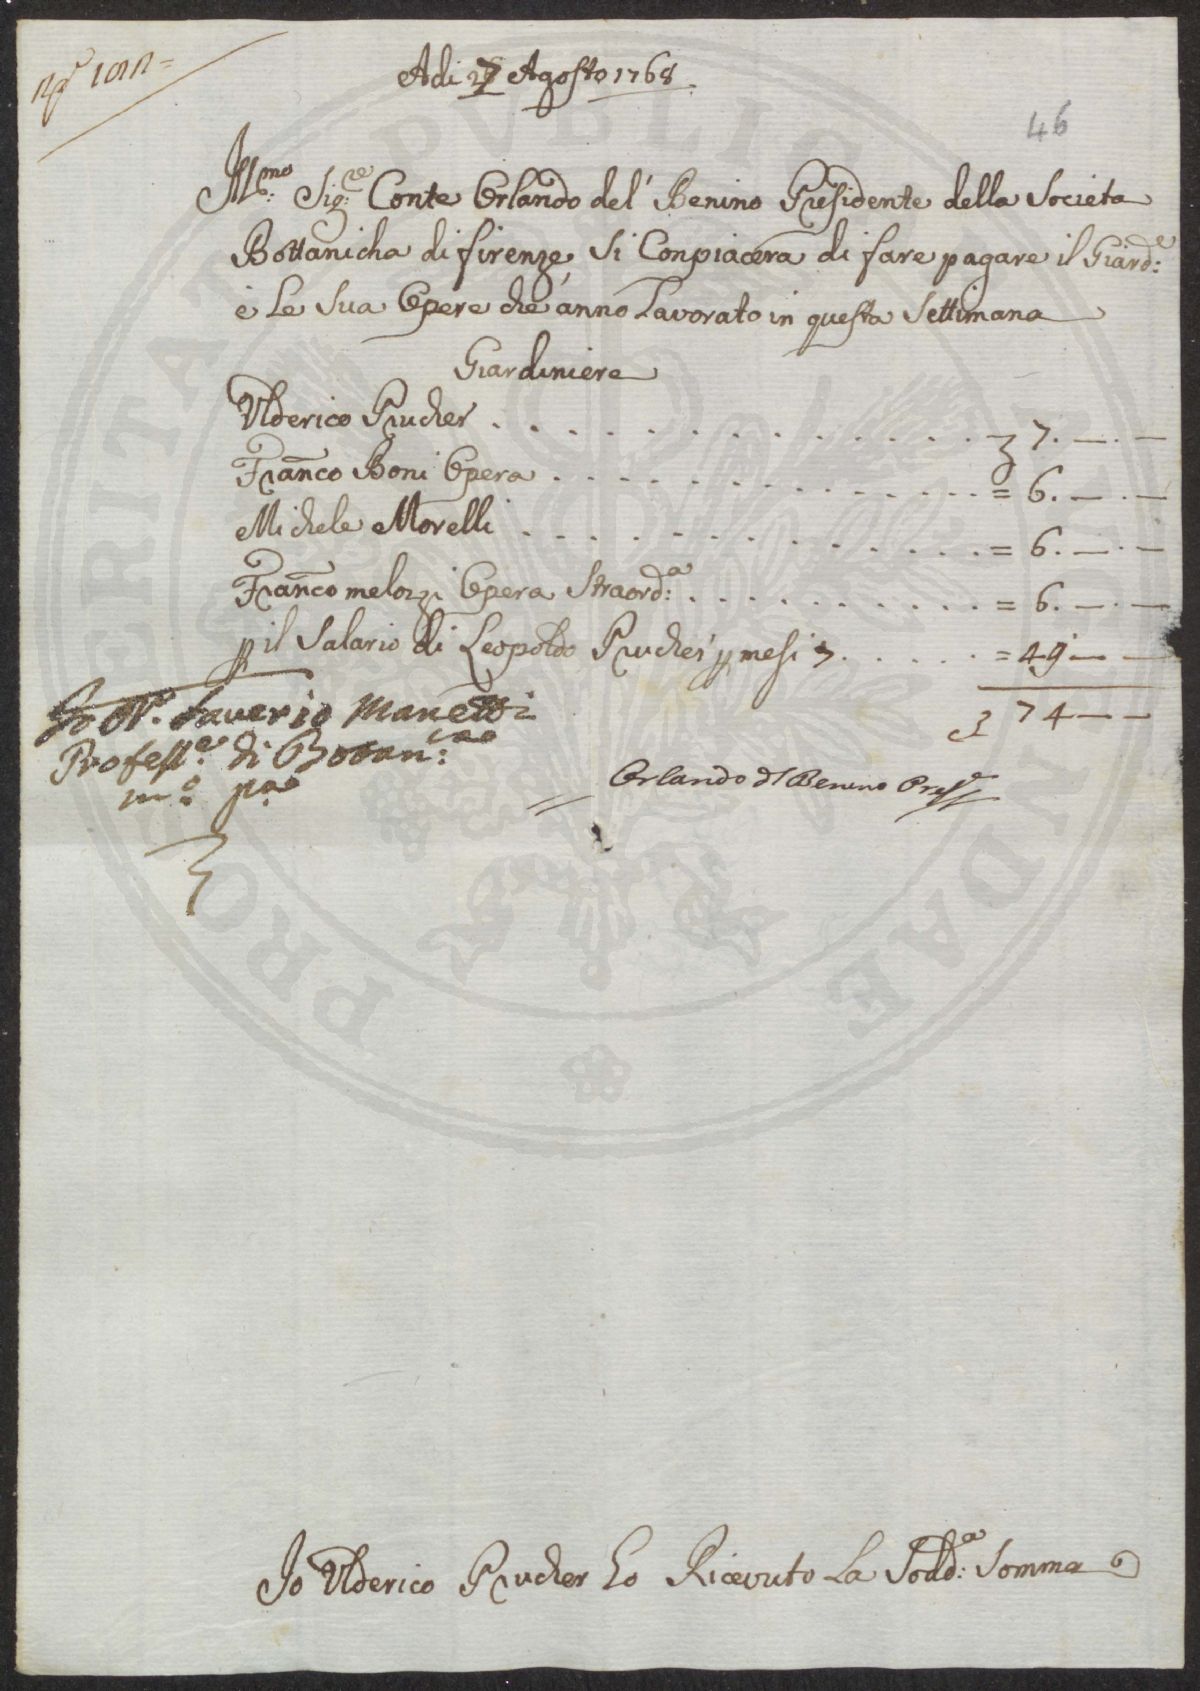 Adi 27 Agosto 1768
46
Ill.mo Sig.re Conte Orlando del' Benino Presidente della Societa
Bottanicha di firenze, Si Conpiacera di fare pagare il Giard.e
è Le Sua Opere che anno Lavorato in questa Settimana
Giardiniere
Ulderico Prucher . . . . . . . . . . . . . . 7. —.—
Fran.co Boni Opera . . . . . . . . . . . . . = 6. —.—
Michele Morelli . . . . . . . . . . . . . = 6. —.—
Fran.co melozzi Opera Straord.a . . . . . . . . . . = 6. —.—
p il Salario di Leopoldo Prucher p mesi 7 . . . . . = 49 — —
74 — —
Io D. Saverio Manetti
Profess.e di Botan.ca
m.o p.a
Orlando dl Benino Pres.e
Io Ulderico Prucher Ho Ricevuto La Sodd.a Somma
PROSPERITATI PVBLICAE AVGENDAE